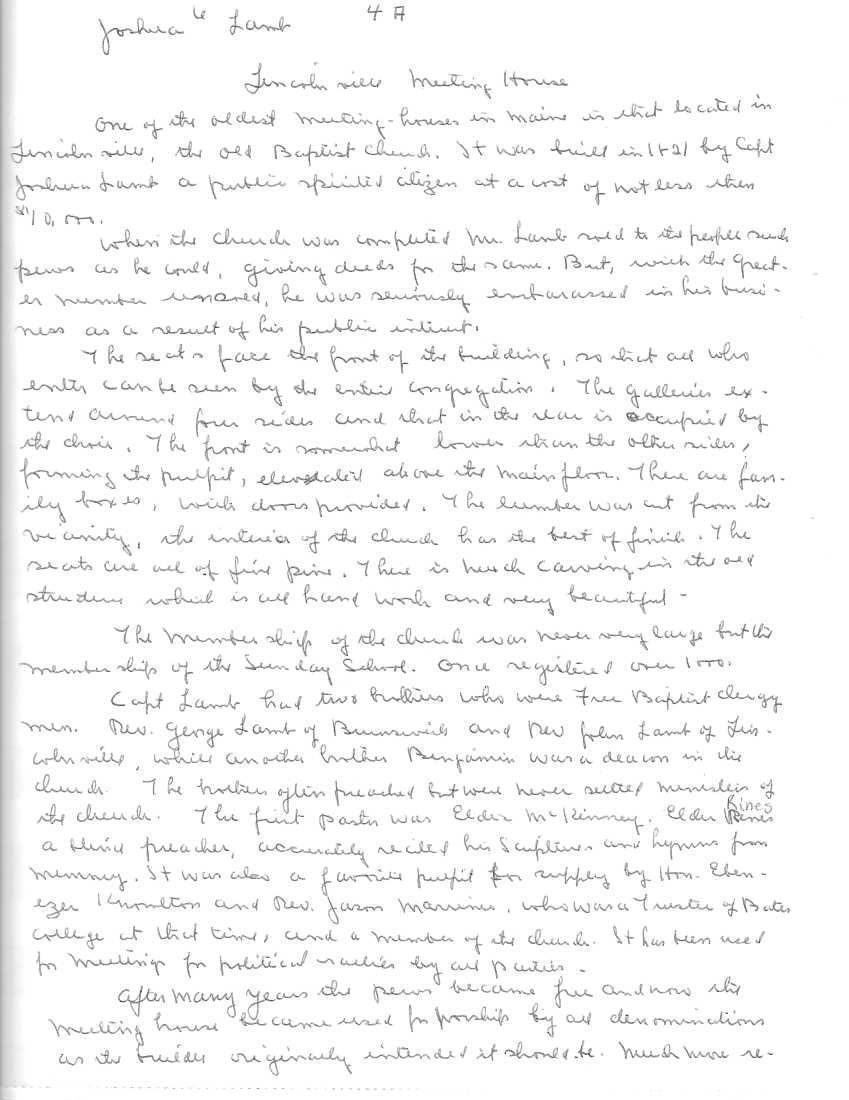 4 A
Joshua Lamb
Lincolnville Meeting House
One of the oldest meeting-houses in Maine is that located in
Lincolnville, the old Baptist Church. It was built in 1821 by Capt
Joshua Lamb a public spirited citizen at a cost of not less than
$10,000.
When the church was completed Mr. Lamb sold to the people such
pews as he could, giving deeds for the same. But, with the great-
er number unsold, he was seriously embarassed in his busi-
ness as a result of his public intent.
The seats face the front of the building, so that all who
enter can be seen by the entire congregation. The galleries ex-
tend around four sides and that in the rear is occupied by
the choir. The front is somewhat lower than the other sides,
forming the pulpit, elevated above the main floor. There are fam-
ily boxes, with doors provided. The lumber was cut from the
vicinity, the interior of the church has the best of finish. The
seats are all of fine pine. There is much carving in the old
structure which is all hand work and very beautiful -
The membership of the church was never very large but the
membership of the Sunday School. Once registered over 1000.
Capt Lamb had two brothers who were Free Baptist clergy
men. Rev. George Lamb of Brunswick and Rev John Lamb of Lin-
colnville, while another brother Benjamin was a deacon in the
church. The brothers often preached but were never settled ministers of
the church. The first pastor was Elder McKinney. Elder Rines
a blind preacher, accurately recited his Scriptures and hymns from
memory. It was also a favorite pulpit for supply by Hon. Eben-
ezer Knowlton and Rev. Jason Mariner, who was a Trustee of Bates
College at that time, and a member of the church. It has been used
for meetings for political rallies by all parties.
After many years the pews became free and now the
meeting house became used for worship by all denominations
as the builder originally intended it should be. Much more re-